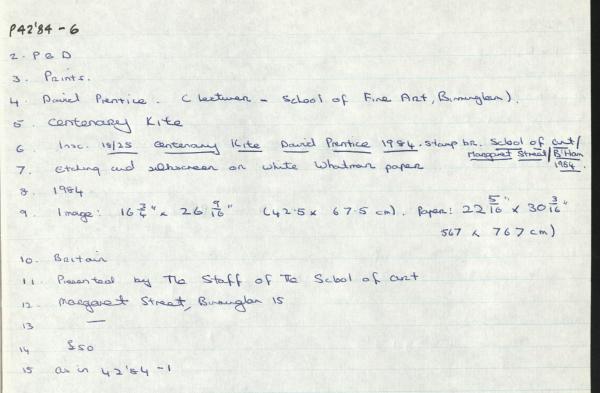 P42'84-6
2. P & D
3. Prints.
4. David Prentice. (Lecturer - School of Fine Art, Birmingham).
5. Centenary Kite
6. Insc. 18/25 Centenary Kite David Prentice 1984. Stamp br. School of Art/ Margaret Street/B'ham 1984.
7. Etching and silkscreen on white Whatman paper
8. 1984
9. Image: 16 3/4" x 26 9/16" (42.5 x 67.5 cm). Paper: 22 5/16" x 30 3/16"
567 x 767 cm)
10. Britain
11. Presented by The Staff of The School of Art
12. Margaret Street, Birmingham 15
13 —
14 £50
15 as in 42'84-1